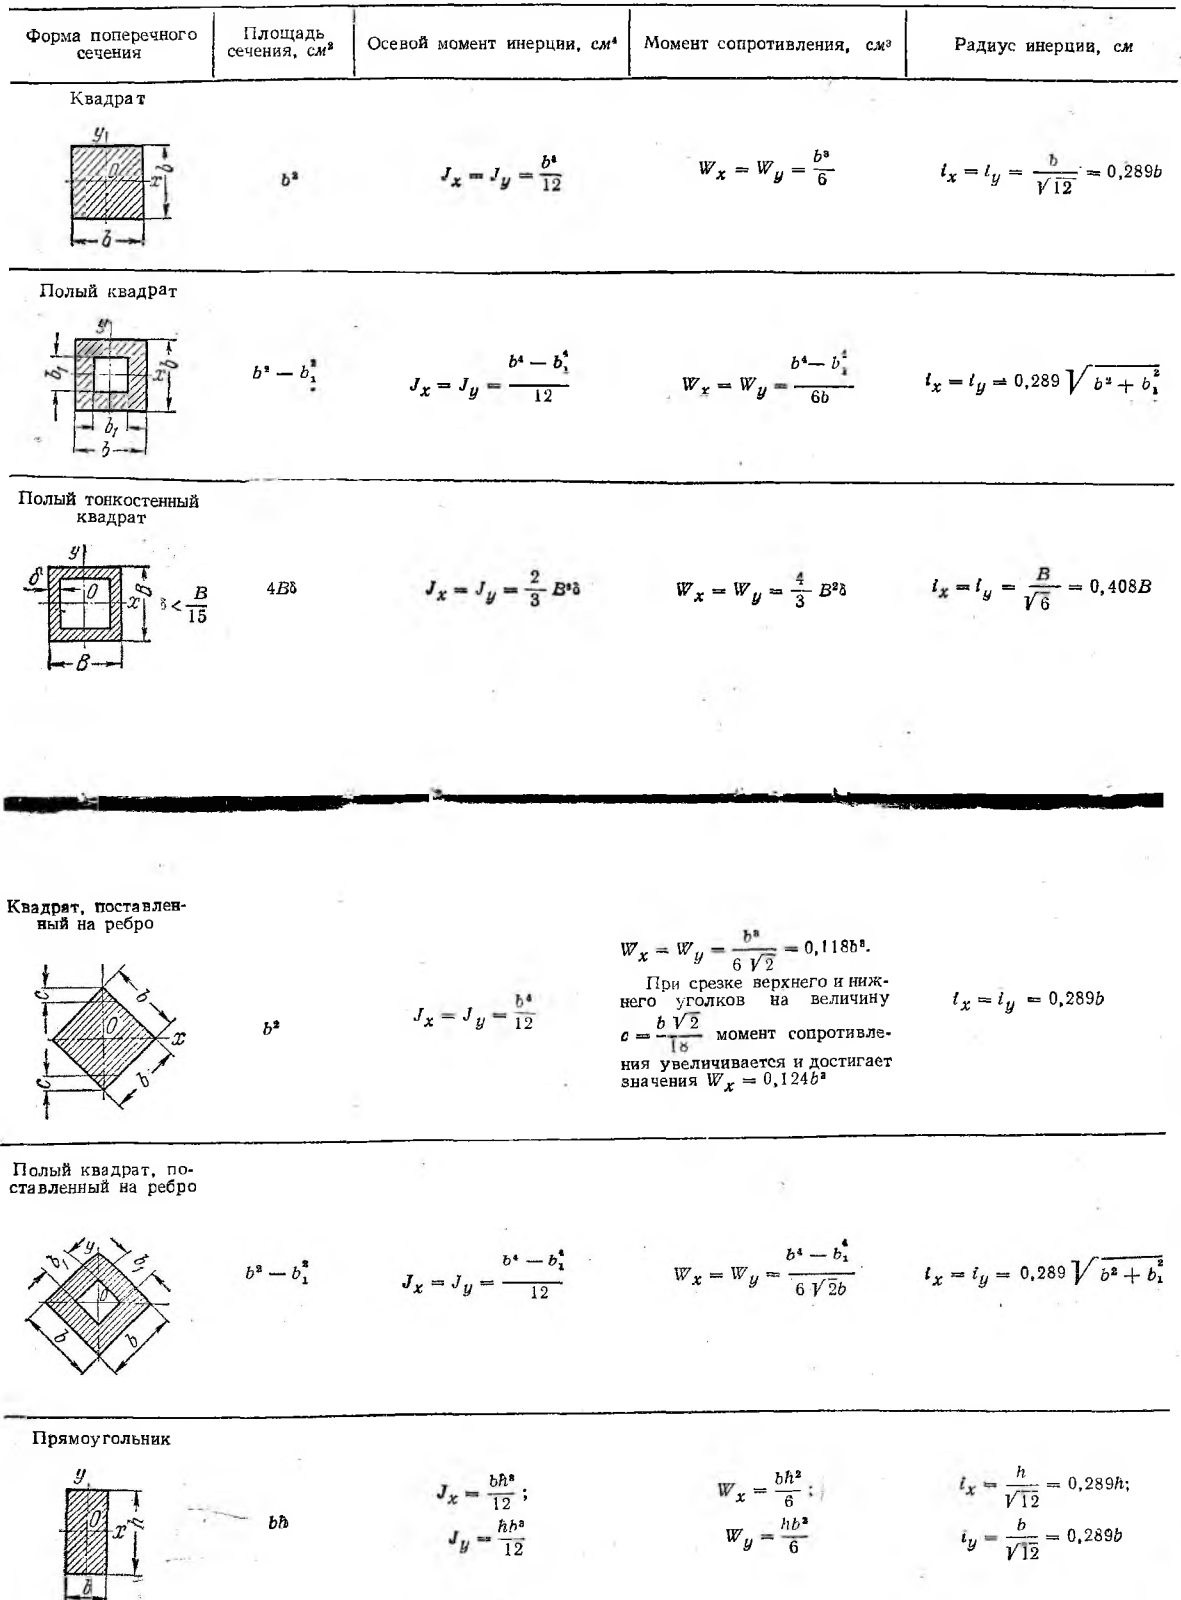 Форма поперечного сечения | Площадь сечения, см² | Осевой момент инерции, см⁴ | Момент сопротивления, см³ | Радиус инерции, см
Квадрат
y
O
x
b
b
b²
Jx = Jy = b⁴/12
Wx = Wy = b³/6
ix = iy = b/√12 = 0,289b
Полый квадрат
y
x
b₁
b
b₁
b
b² — b₁²
Jx = Jy = (b⁴ — b₁⁴)/12
Wx = Wy = (b⁴ — b₁⁴)/6b
ix = iy = 0,289 √(b² + b₁²)
Полый тонкостенный
квадрат
y
δ
O
x
B
B
δ < B/15
4Bδ
Jx = Jy = 2/3 B³δ
Wx = Wy = 4/3 B²δ
ix = iy = B/√6 = 0,408B
Квадрат, поставлен-
ный на ребро
c
b
O
x
c
b
b²
Jx = Jy = b⁴/12
Wx = Wy = b³/6√2 = 0,118b³.
При срезке верхнего и ниж-
него уголков на величину
c = b√2/18 момент сопротивле-
ния увеличивается и достигает
значения Wx = 0,124b³
ix = iy = 0,289b
Полый квадрат, по-
ставленный на ребро
b₁
y
b₁
O
b
b
b² — b₁²
Jx = Jy = (b⁴ — b₁⁴)/12
Wx = Wy = (b⁴ — b₁⁴)/6√2b
ix = iy = 0,289 √(b² + b₁²)
Прямоугольник
y
O
x
h
b
bh
Jx = bh³/12;
Jy = hb³/12
Wx = bh²/6;
Wy = hb²/6
ix = h/√12 = 0,289h;
iy = b/√12 = 0,289b